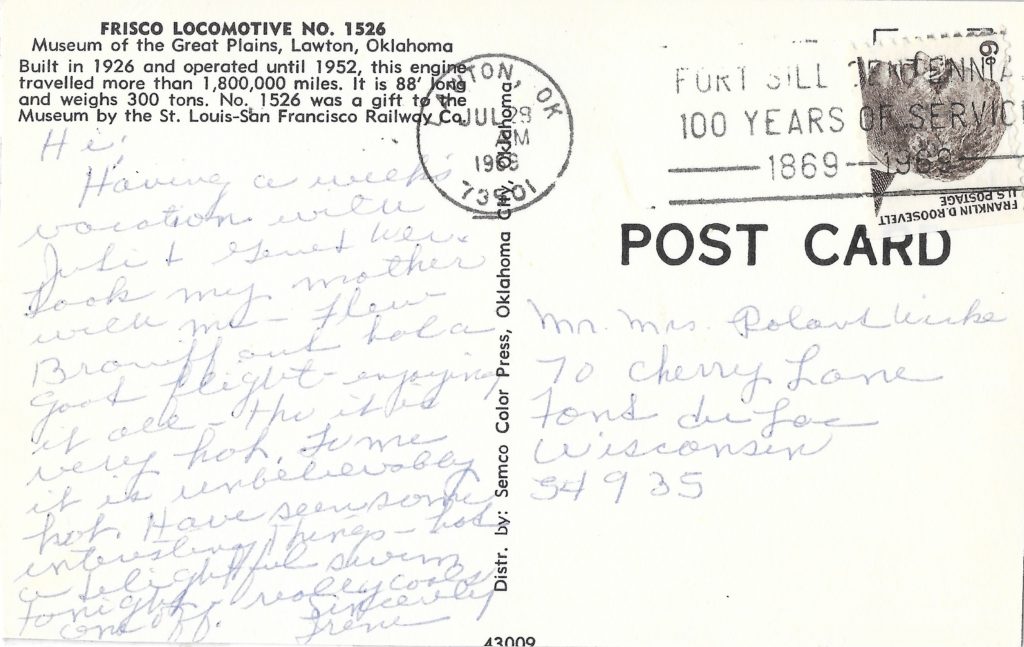 FRISCO LOCOMOTIVE NO. 1526
Museum of the Great Plains, Lawton, Oklahoma
Built in 1926 and operated until 1952, this engine
travelled more than 1,800,000 miles. It is 88' long
and weighs 300 tons. No. 1526 was a gift to the
Museum by the St. Louis-San Francisco Railway Co.
Hi,
Having a week's
vacation with
Took my mother
with me - Flew
Braniff and had a
good flight - enjoying
it all - tho it is
very hot. To me
it is unbelievably
hot. Have seen some
interesting things - had
a delightful swim
tonight - really cools
one off.
Sincerely
Irene
Distr. by: Semco Color Press, Oklahoma City, Oklahoma
43009
LAWTON, OK
JUL 29
PM
1969
73501
FORT SILL CENTENNIAL
100 YEARS OF SERVICE
1869-1969
6¢
FRANKLIN D. ROOSEVELT
U.S. POSTAGE
POST CARD
Mr. Mrs.
70 Cherry Lane
Fond du Lac
Wisconsin
54935